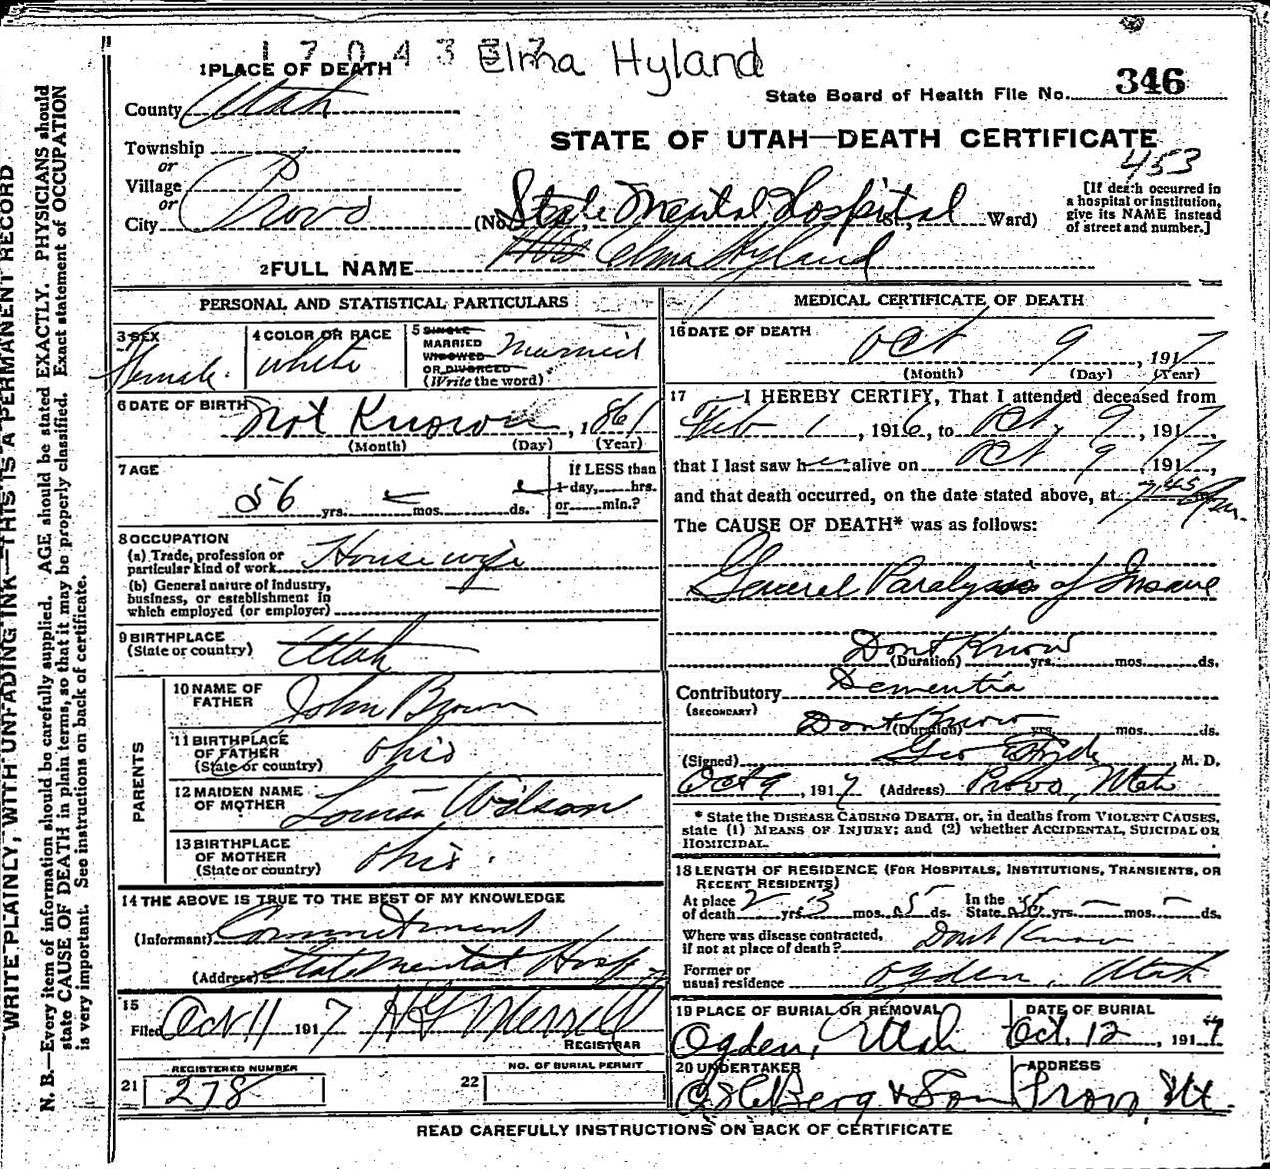 170433
Elma Hyland
1 PLACE OF DEATH
State Board of Health File No. 346
County Utah
STATE OF UTAH—DEATH CERTIFICATE
453
Township
or
Village
or
City Provo
(No. State Mental Hospital St., Ward)
[If death occurred in
a hospital or institution,
give its NAME instead
of street and number.]
2 FULL NAME Elma Hyland
PERSONAL AND STATISTICAL PARTICULARS
3 SEX Female
4 COLOR OR RACE white
5 SINGLE
MARRIED
WIDOWED
OR DIVORCED
(Write the word) Married
6 DATE OF BIRTH Not Known, 1861
(Month) (Day) (Year)
7 AGE
56 yrs. mos. ds.
If LESS than
1 day, hrs.
or min.?
8 OCCUPATION
(a) Trade, profession or
particular kind of work Housewife
(b) General nature of industry,
business, or establishment in
which employed (or employer)
9 BIRTHPLACE
(State or country) Utah
PARENTS
10 NAME OF
FATHER John Brown
11 BIRTHPLACE
OF FATHER
(State or country) Ohio
12 MAIDEN NAME
OF MOTHER Louisa Wilson
13 BIRTHPLACE
OF MOTHER
(State or country) Ohio.
14 THE ABOVE IS TRUE TO THE BEST OF MY KNOWLEDGE
(Informant) Commitment
(Address) State Mental Hosp
15
Filed Oct 11 1917 H G Merrill
REGISTRAR
21 REGISTERED NUMBER
278
22 NO. OF BURIAL PERMIT
MEDICAL CERTIFICATE OF DEATH
16 DATE OF DEATH
Oct 9, 1917
(Month) (Day) (Year)
17 I HEREBY CERTIFY, That I attended deceased from
Feb 1, 1916, to Oct. 9, 1917,
that I last saw her alive on Oct 9, 1917,
and that death occurred, on the date stated above, at 7 45 Pm.
The CAUSE OF DEATH* was as follows:
General Paralysis of Insane
Dont Know
(Duration) yrs. mos. ds.
Contributory Dementia
(SECONDARY)
Dont Know
(Duration) yrs. mos. ds.
(Signed) Geo E Hyde M. D.
Oct 9, 1917 (Address) Provo, Utah
* State the DISEASE CAUSING DEATH, or, in deaths from VIOLENT CAUSES,
state (1) MEANS OF INJURY; and (2) whether ACCIDENTAL, SUICIDAL OR
HOMICIDAL.
18 LENGTH OF RESIDENCE (FOR HOSPITALS, INSTITUTIONS, TRANSIENTS, OR
RECENT RESIDENTS)
At place
of death 2 yrs 3 mos. 5 ds. In the
State yrs. mos. ds.
Where was disease contracted,
if not at place of death? Dont Know
Former or
usual residence Ogden, Utah
19 PLACE OF BURIAL OR REMOVAL
Ogden, Utah
DATE OF BURIAL
Oct. 12, 1917
20 UNDERTAKER
Berg & Son
ADDRESS
Provo, Ut.
READ CAREFULLY INSTRUCTIONS ON BACK OF CERTIFICATE
WRITE PLAINLY, WITH UNFADING INK—THIS IS A PERMANENT RECORD
N. B.—Every item of information should be carefully supplied. AGE should be stated EXACTLY. PHYSICIANS should
state CAUSE OF DEATH in plain terms, so that it may be properly classified. Exact statement of OCCUPATION
is very important. See instructions on back of certificate.